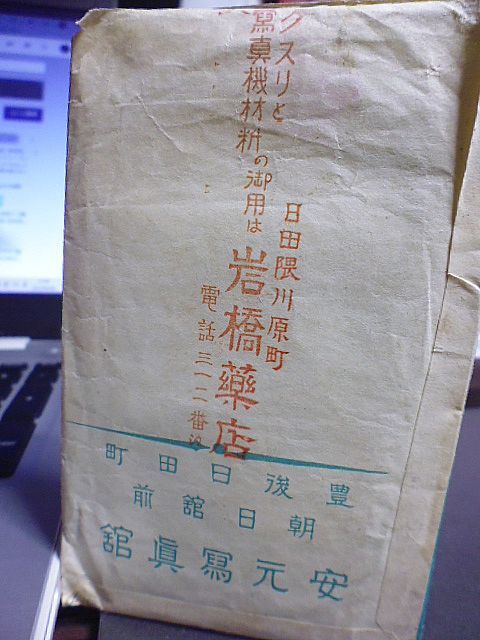 クスリと
寫真機材料の御用は
日田隈川原町
岩橋藥店
電話三一二番
豊後日田町
朝日舘前
安元寫眞舘